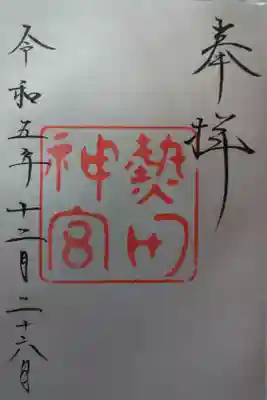 奉拝
熱田
神宮
令和五年十二月二十六日